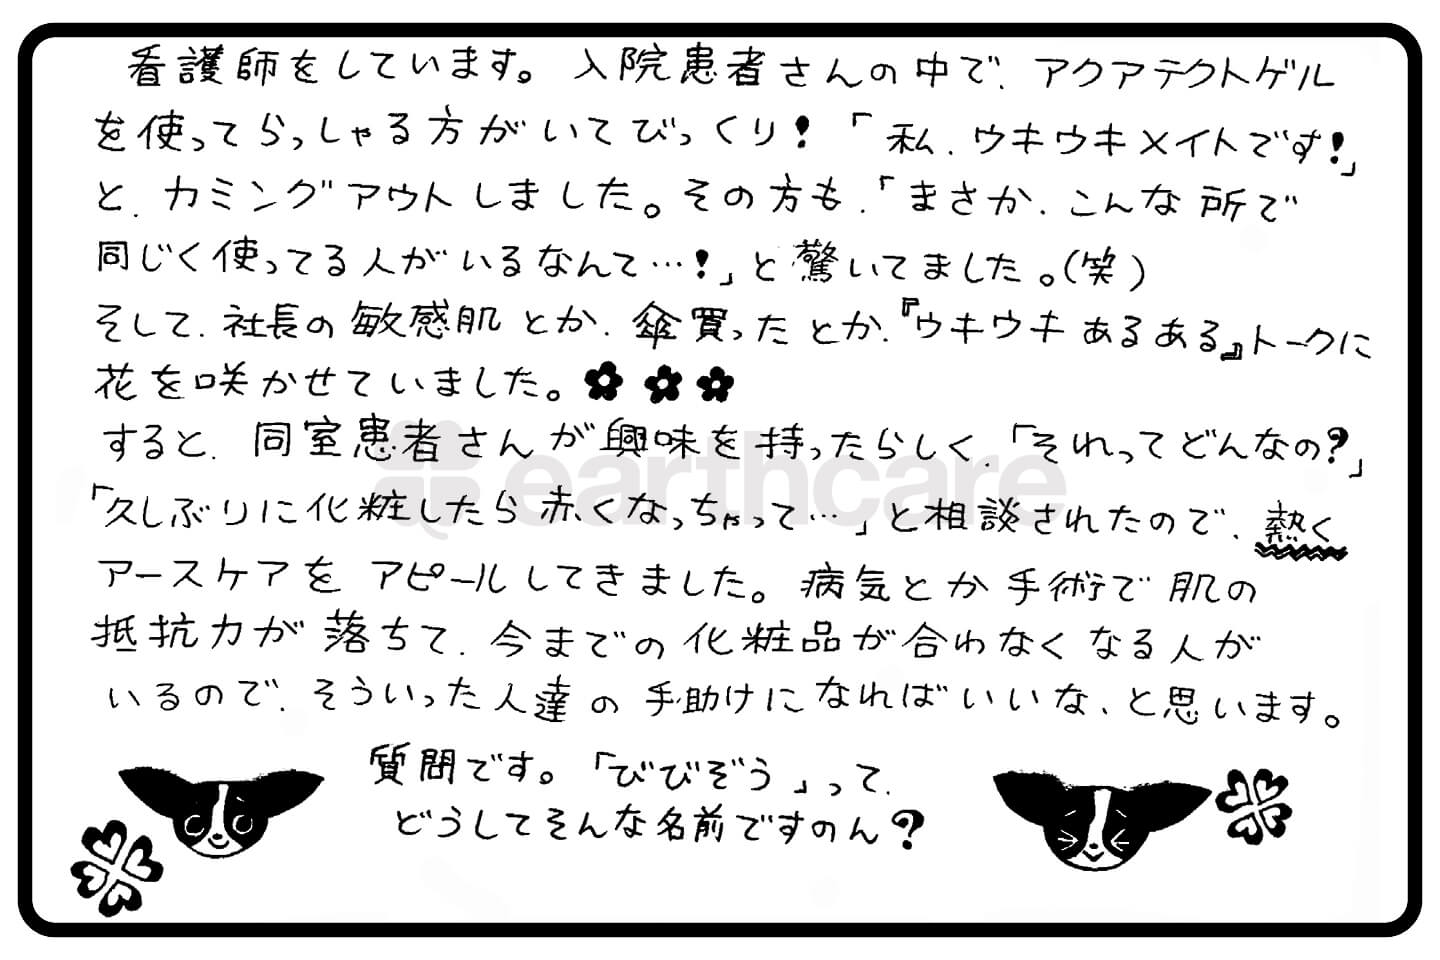 看護師をしています。入院患者さんの中で、アクアテクトゲル
を使ってらっしゃる方がいてびっくり！「私、ウキウキメイトです！」
と、カミングアウトしました。その方も、「まさか、こんな所で
同じく使ってる人がいるなんて…！」と驚いてました。（笑）
そして、社長の敏感肌とか、傘買ったとか、『ウキウキあるある』トークに
花を咲かせていました。✿✿✿
すると、同室患者さんが興味を持ったらしく、「それってどんなの？」
「久しぶりに化粧したら赤くなっちゃって…」と相談されたので、熱く
アースケアをアピールしてきました。病気とか手術で肌の
抵抗力が落ちて、今までの化粧品が合わなくなる人が
いるので、そういった人達の手助けになればいいな、と思います。
質問です。「びびぞう」って、
どうしてそんな名前ですのん？
earthcare